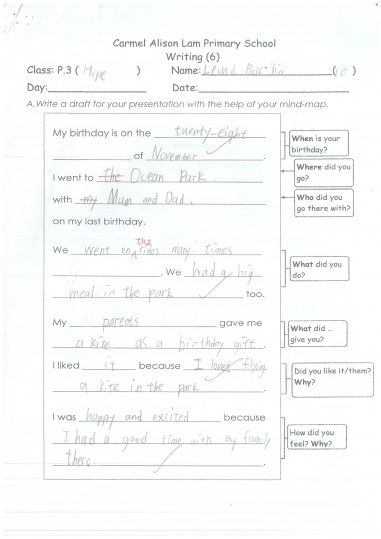 Carmel Alison Lam Primary School
Writing (6)
Class: P.3 ( Hope ) Name: Leung Pak (10)
Day: Date:
A. Write a draft for your presentation with the help of your mind-map.
My birthday is on the twenty-eight
of November.
When is your birthday?
I went to the Ocean Park.
Where did you go?
with my Mum and Dad.
Who did you go there with?
on my last birthday.
We went on the rides many times
. We had a big
What did you do?
meal in the park too.
My parents gave me
a kite as a birthday gift.
What did .. give you?
I liked it because I loved flying
a kite in the park.
Did you like it/them? Why?
I was happy and excited because
I had a good time with my family
there.
How did you feel? Why?